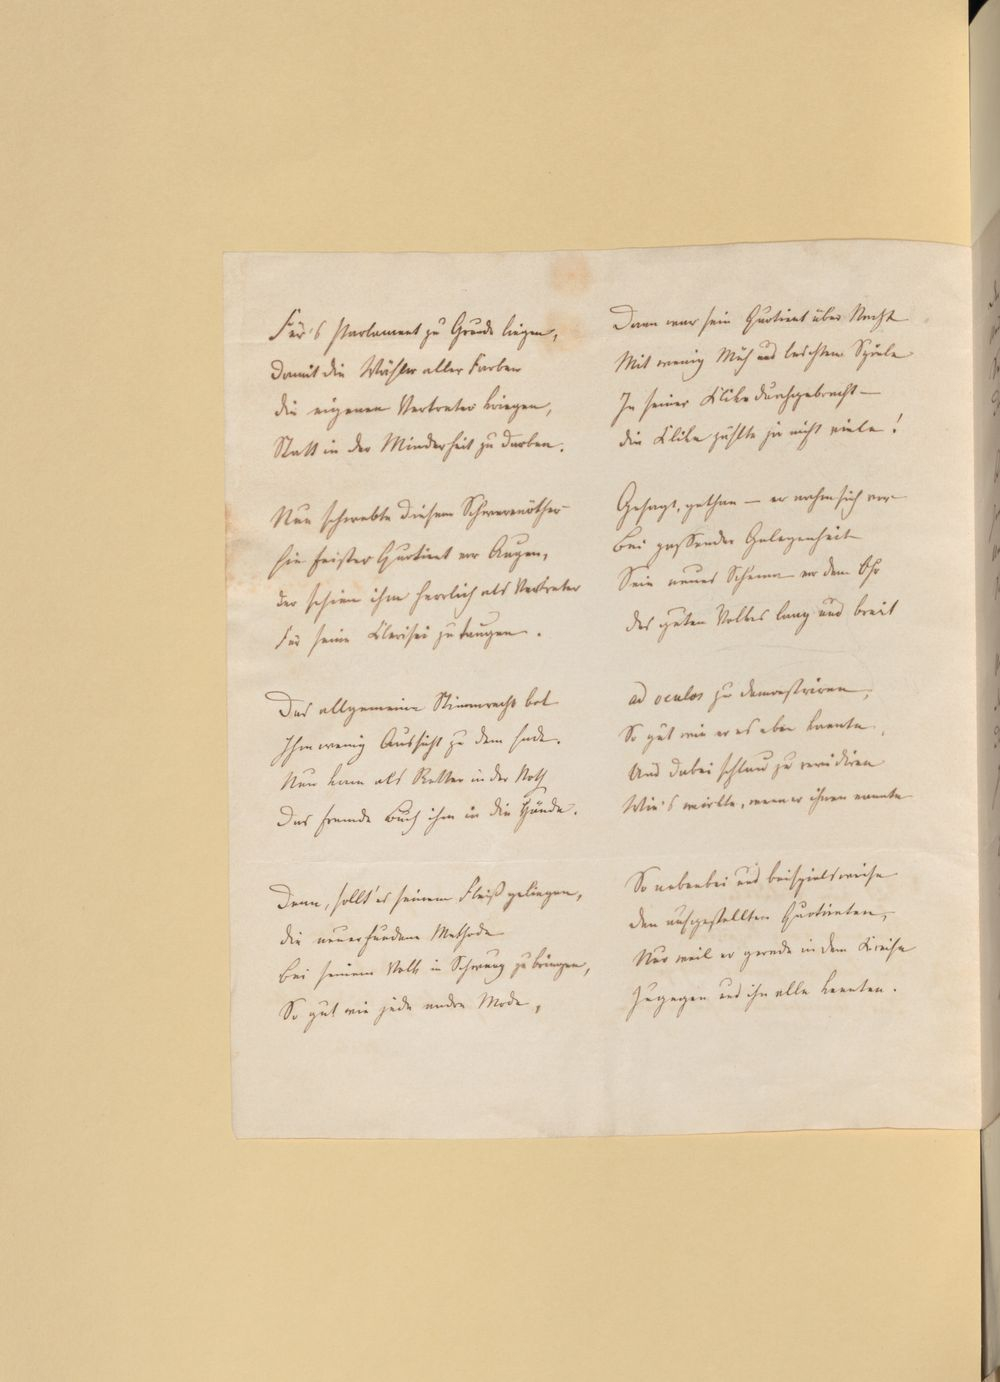 Für's Parlament zu Grunde liegen,
Damit die Wähler aller Farben
Die eigenen Vertreter kriegen,
Statt in der Minderheit zu darben.
Nun schwebte diesem Schwerenöther
Ein feister Quotient vor Augen,
Der schien ihm herrlich als Vertreter
Für seine Klerisei zu taugen.
Das allgemeine Stimmrecht bot
Ihm wenig Aussicht zu dem Ende.
Nun kam als Retter in der Noth
Das fremde Buch ihm in die Hände.
Denn, sollt' es seinem Fleiß gelingen,
Die neuerfundene Methode
Bei seinem Volk in Schwung zu bringen,
So gut wie jede andre Mode,
Dann war sein Quotient über Nacht
Mit wenig Müh und leichtem Spiele
In seiner Klike durchgebracht —
Die Klike zählte ja nicht viele!
Gesagt, gethan — er nahm sich vor
Bei passender Gelegenheit
Sein neues Schema vor dem Ohr
Des guten Volkes lang und breit
ad oculos zu demonstriren,
So gut wie er es eben kannte,
Und dabei schlau zu
Wie's wirkte, wenn er ihnen nannte
So nebenbei und beispielsweise
Den aufgestellten Quotienten,
Nur weil er gerade in dem Kreise
Zugegen und ihn alle kennten.